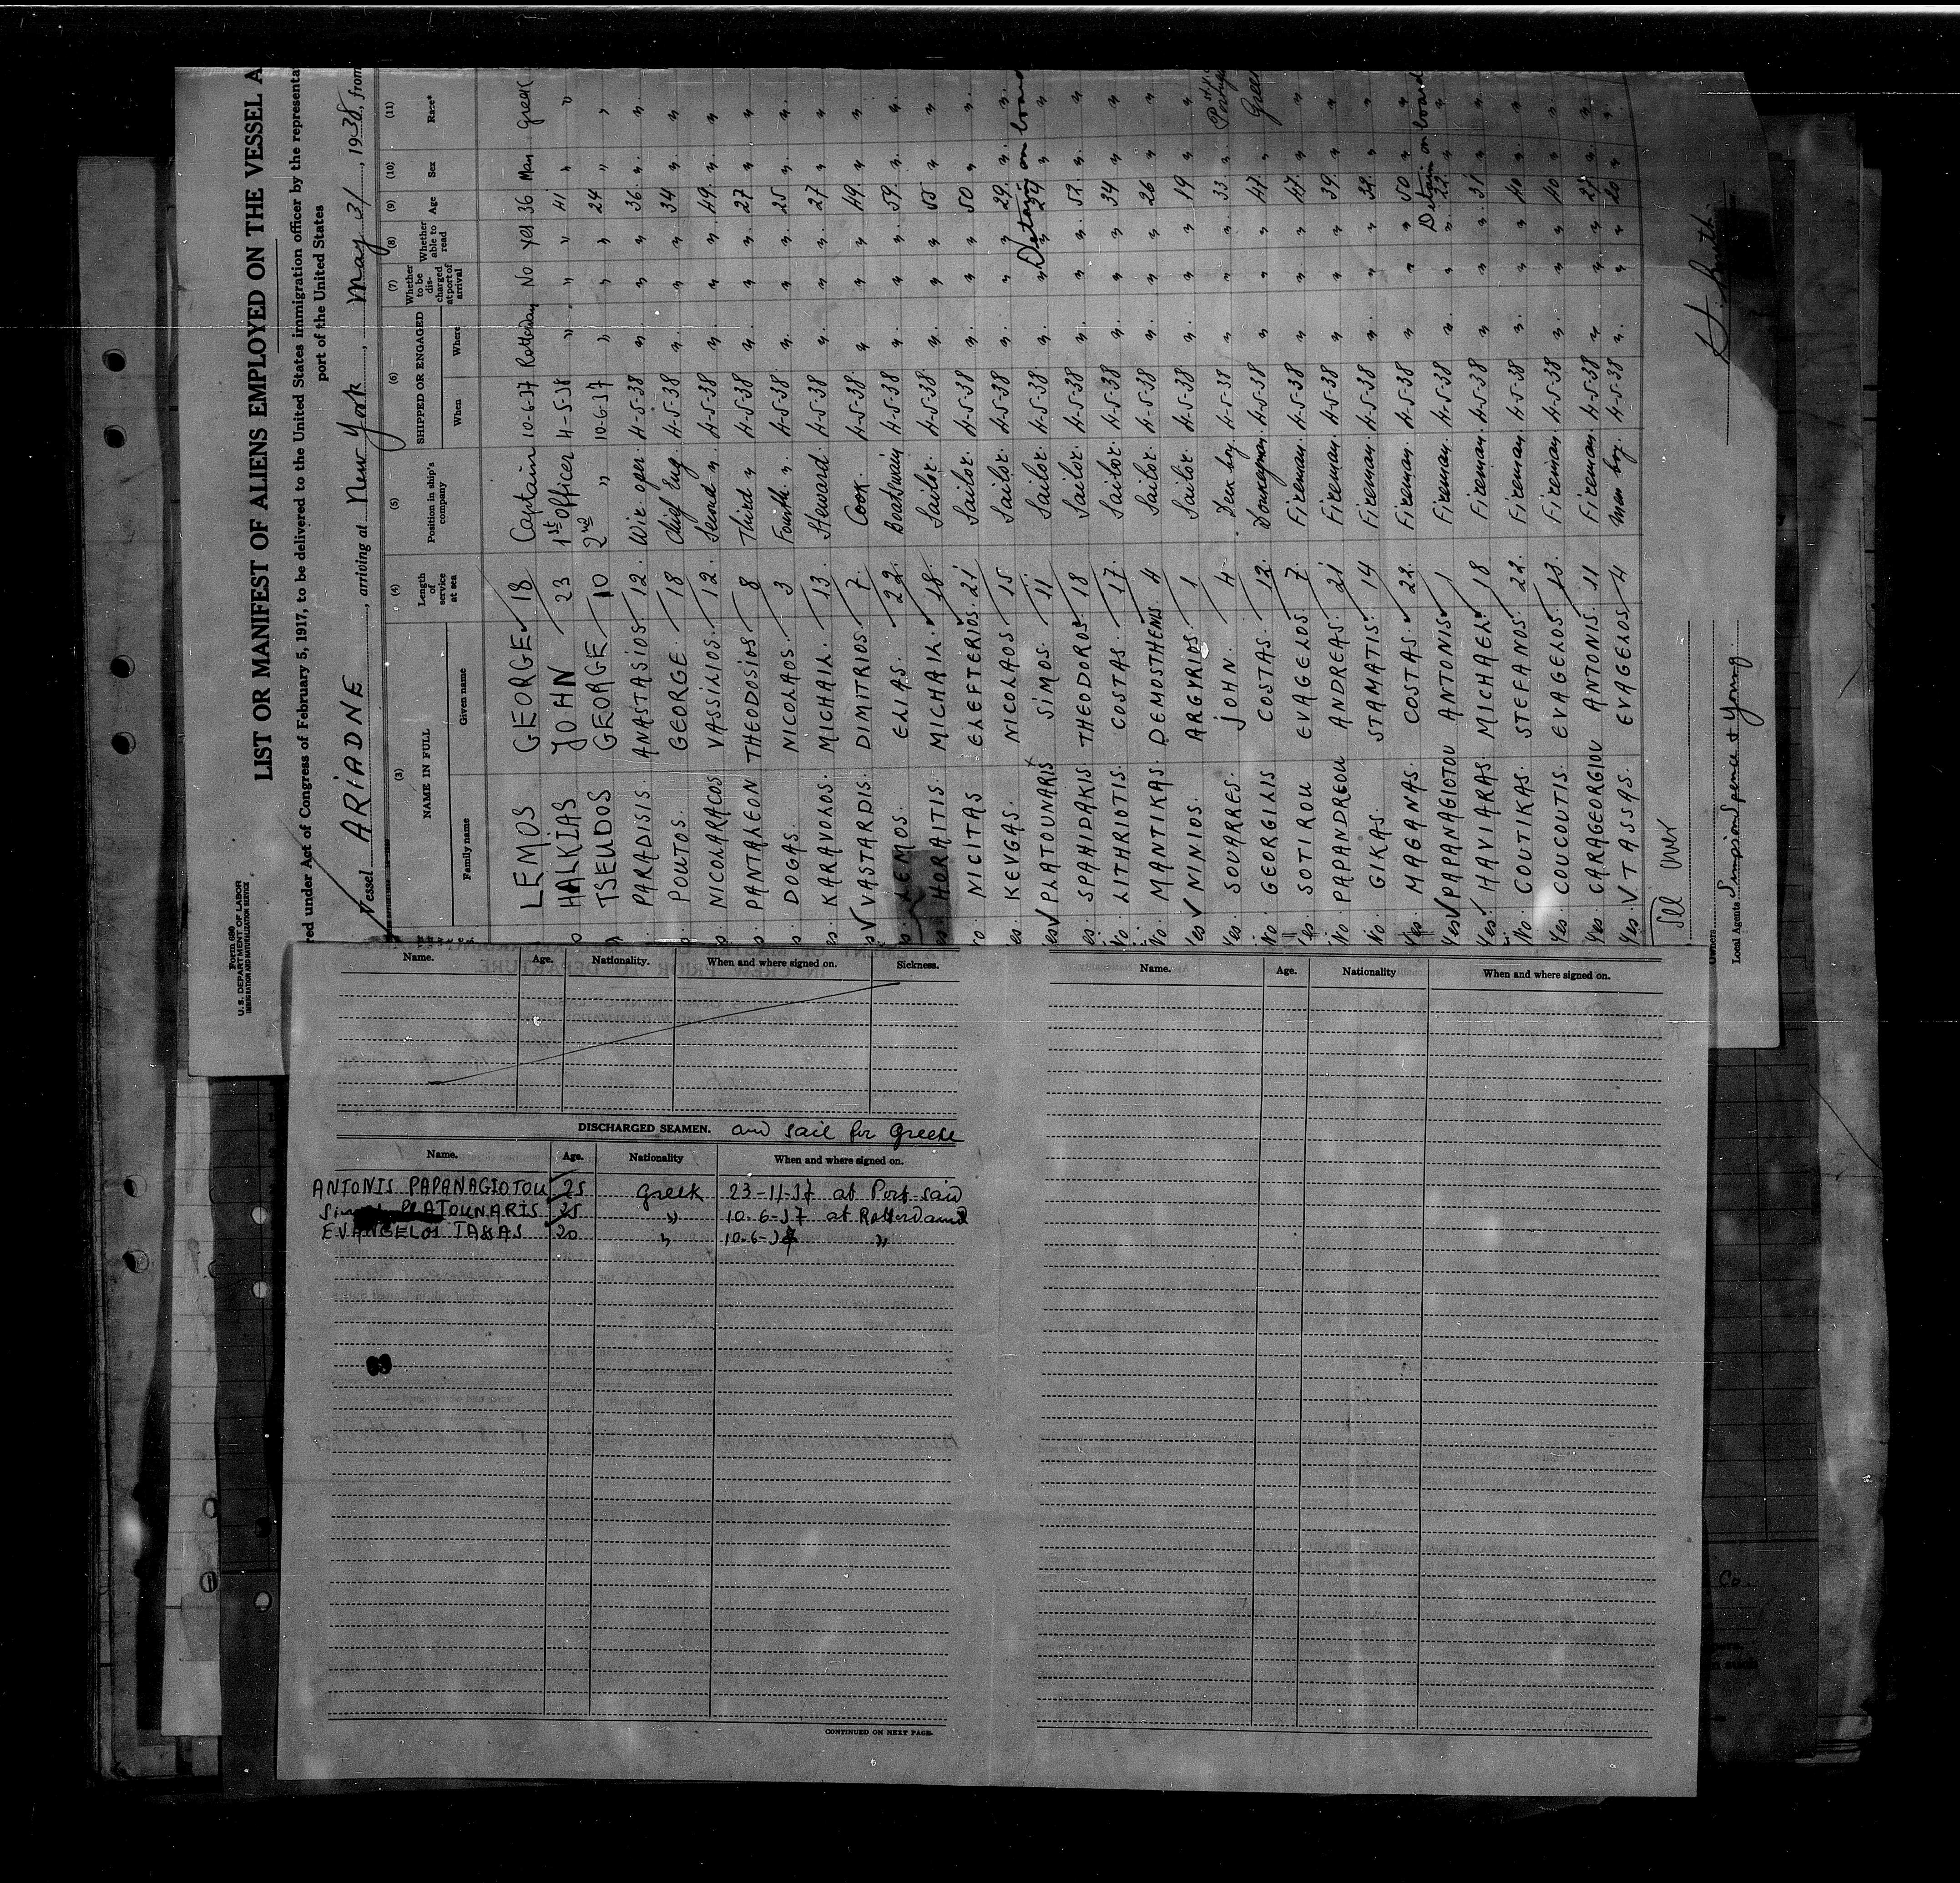 Form 680
U. S. DEPARTMENT OF LABOR
IMMIGRATION AND NATURALIZATION SERVICE
LIST OR MANIFEST OF ALIENS EMPLOYED ON THE VESSEL A
red under Act of Congress of February 5, 1917, to be delivered to the United States immigration officer by the representa
port of the United States
Vessel ARIADNE, arriving at New York, May 31, 1938, from
(3) (4) (5) (6) (7) (8) (9) (10) (11)
NAME IN FULL Length of service at sea Position in ship's company SHIPPED OR ENGAGED Whether to be discharged at port of arrival Whether able to read Age Sex Race*
Family name Given name When Where
LEMOS GEORGE 18 Captain 10-6-37 Rotterdam No Yes 36 Man Greek
HALKIAS JOHN 23 1st Officer 4-5-38 " " " 41 " "
TSEUDOS GEORGE 10 2nd " 10-6-37 " " " 24 " "
PARADISIS. ANASTASIOS 12. Wir oper. 4-5-38 " " " 36. " "
POUTOS. GEORGE. 18 Chief Eng. 4-5-38 " " " 34 " "
NICOLARACOS. VASSILIOS. 12. Second " 4-5-38 " " " 49. " "
PANTALEON THEODOSIOS 8 Third " 4-5-38 " " " 27 " "
DOGAS. NICOLAOS. 3 Fourth " 4-5-38 " " " 25 " "
es KARAVOLOS. MICHAIL. 13. Steward. 4-5-38 " " " 27 " "
s √ VASTARDIS. DIMITRIOS. 7. Cook. 4-5-38. " " " 49 " "
LEMOS. ELIAS. 22. Boatswain 4-5-38 " " " 59. " "
es. HORAITIS. MICHAIL. 18. Sailor. 4-5-38. " " " 55 " "
ro NICITAS ELEFTERIOS. 21 Sailor. 4-5-38. " " " 50 " "
es. KEVGAS. NICOLAOS 15 Sailor. 4-5-38 " " " 29. " "
Detain on board
es √ PLATOUNARIS SIMOS. 11 Sailor. 4-5-38 " " " "
es. SPAHIDAKIS THEODOROS. 18 Sailor. 4-5-38 " " " 52. " "
No. LITHRIOTIS. COSTAS. 17. Sailor. 4-5-38 " " " 34 " "
No. MANTIKAS. DEMOSTHENIS 4 Sailor. 4-5-38 " " " 26 " "
Yes √ NINIOS. ARGYRIOS. 1 Sailor. 4-5-38 " " " 19 " "
Yes SOUARRES. JOHN. 4. Deck boy. 4-5-38 " " " 33. "
No. GEORGILIS COSTAS. 12. Donkeyman. 4-5-38 " " " 47. " Greek
Yes. SOTIROU EVAGELOS 7. Fireman. 4-5-38 " " " 47. " "
No. PAPANDREOU ANDREAS. 21 Fireman. 4-5-38 " " " 39. " "
No. GIKAS. STAMATIS. 14 Fireman. 4-5-38 " " " "
Yes MAGANAS. COSTAS. 22. Fireman. 4-5-38 " " " 50 " "
Detain on board
Yes √ PAPANAGIOTOU ANTONIS 1 Fireman. 4-5-38 " " " "
Yes HAVIARAS MICHAEL 18 Fireman. 4-5-38 " " " 31 " "
No. COUTIKAS. STEFANOS. 22. Fireman 4-5-38 " " " 40 " "
Yes. COUCOUTIS. EVAGELOS. 13. Fireman. 4-5-38 " " " 40 " "
Yes CARAGEORGIOU ANTONIS. 11 Fireman. 4-5-38 " " " "
Yes. √ TASSAS. EVAGELOS 4 Mess boy. 4-5-38 " " " 20 " "
See Over
Owners
Local Agents Simpson Spence & Young
Name. Age. Nationality. When and where signed on. Sickness.
DISCHARGED SEAMEN. and sail for Greece
Name. Age. Nationality When and where signed on.
ANTONIS PAPANAGIOTOU 25 Greek 23-11-37 at Port said
PLATOUNARIS 25 " 10.6-37 at Rotterdam
EVANGELOS TASSAS 20 " 10.6-37 "
CONTINUED ON NEXT PAGE.
Name. Age. Nationality When and where signed on.
Co.